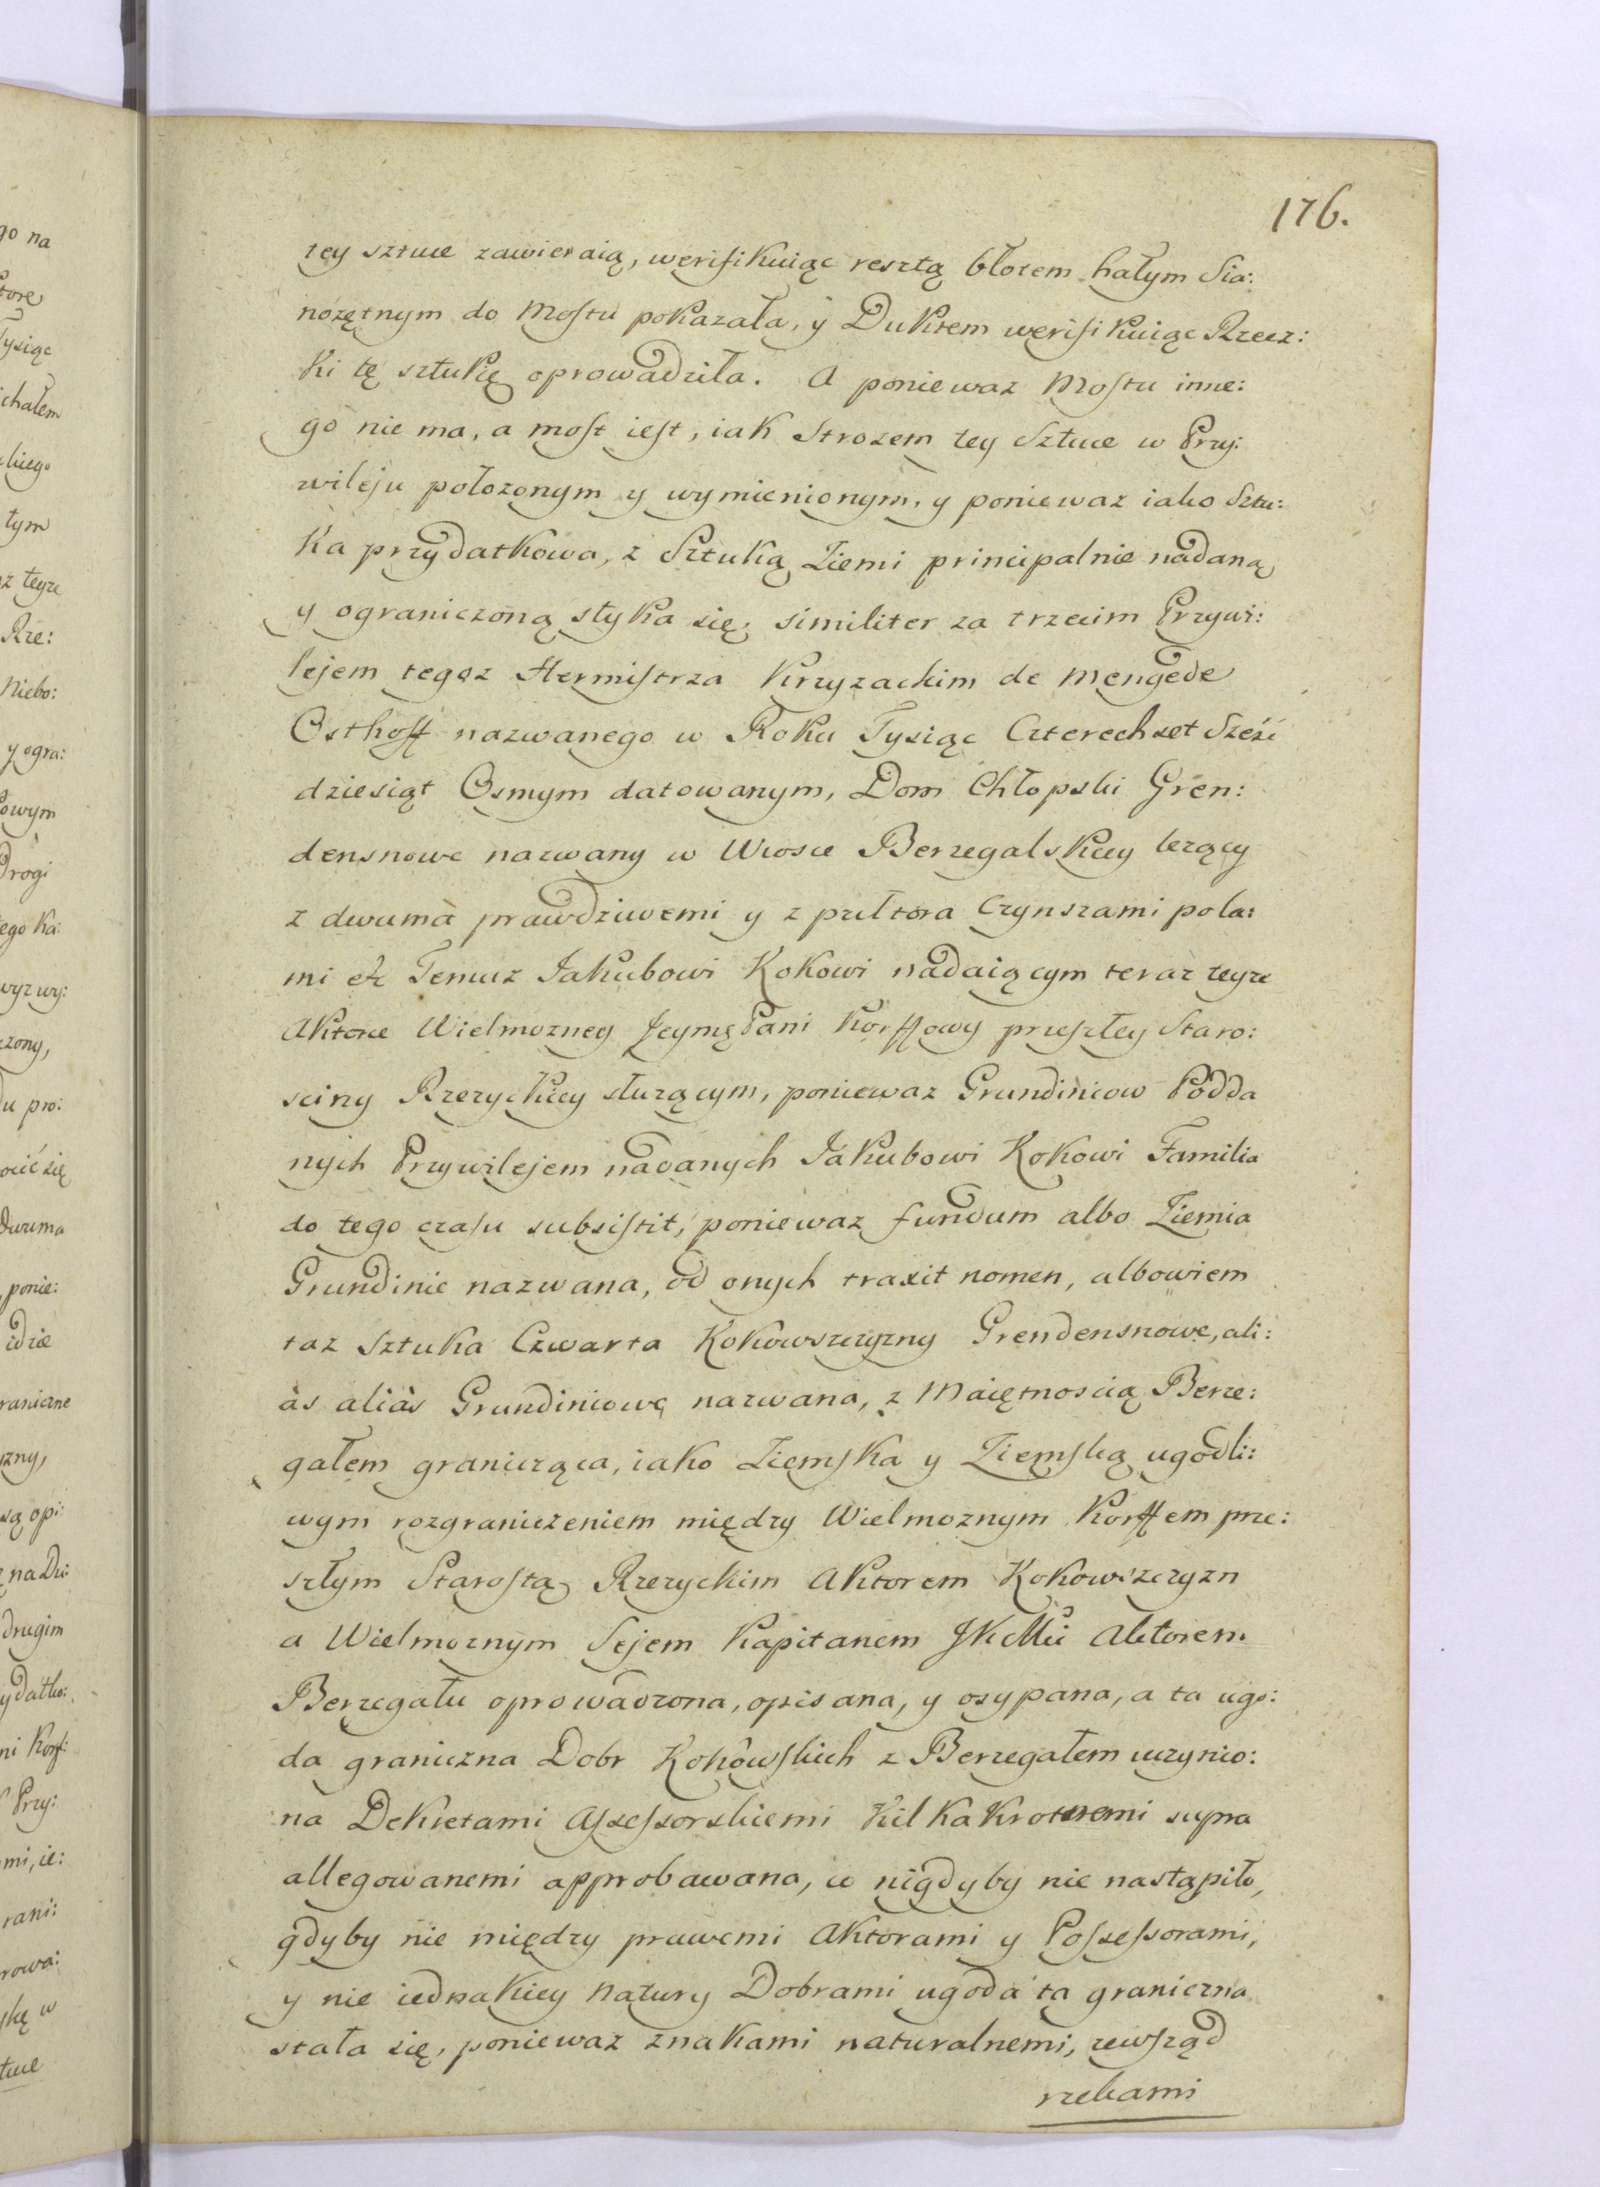 176.
tey sztuce zawieraią, weryfikuiąc resztą błotem hałym Sia:
nożętnym do Mostu pokazała, y Duktem weryfikuiąc Rzecz:
ki tę sztukę oprowadziła. A poniewaz Mostu inne:
go nie ma, a most iest, iak Strozem tey Sztuce w Przy:
wileju połozonym y wymienionym, y poniewaz iako Sztu:
ka przydatkowa, z Sztuką Ziemi principalnie nadaną
y ograniczoną styka się, similiter za trzecim Przywi:
lejem tegoz Hermistrza Krzyzackim de Mengede
Osthoff nazwanego w Roku Tysiąc Czterechset Sześć
dziesiąt Osmym datowanym, Dom Chłopski Gren:
densnowe nazwany w Wiosce Berzegalskiey lezący
z dwuma prawdziwemi y z pułtora Czynszami pola:
mi etc Temuz Jakubowi Kokowi nadaiącym teraz teyze
Aktorce Wielmozney Jeymę Pani Korffowy przeszłey Staro:
sciny Rzezyckiey słuzącym, poniewaz Grundinicow Podda
nych Przywilejem nadanych Jakubowi Kokowi Familia
do tego czasu subsistit, poniewaz fundum albo Ziemia
Grundinie nazwana, od onych traxit nomen, albowiem
taz Sztuka Czwarta Kokowszczyzny Grendensnowe, ali:
às aliàs Grundiniowe nazwana, z Maiętnoscią Berze:
gałem granicząca, iako Ziemska y Ziemską ugodli:
wym rozgraniczeniem między Wielmoznym Korffem prze:
szłym Starostą Rzezyckim Aktorem Kokowszczyzn
a Wielmoznym Sejem Kapitanem JKMci Aktorem
Berzegału oprowadzona, opisana, y osypana, a ta ugo:
da graniczna Dobr Kokowskich z Berzegałem uczynio:
na Dekretami Assessorskiemi Kilkakrotnemi supra
allegowanemi approbawana, co nigdyby nie nastąpiło,
gdyby nie między prawemi Aktorami y Possessorami,
y nie iednakiey Natury Dobrami ugoda ta graniczna
stała się, poniewaz znakami naturalnemi, zewsząd
rzekami